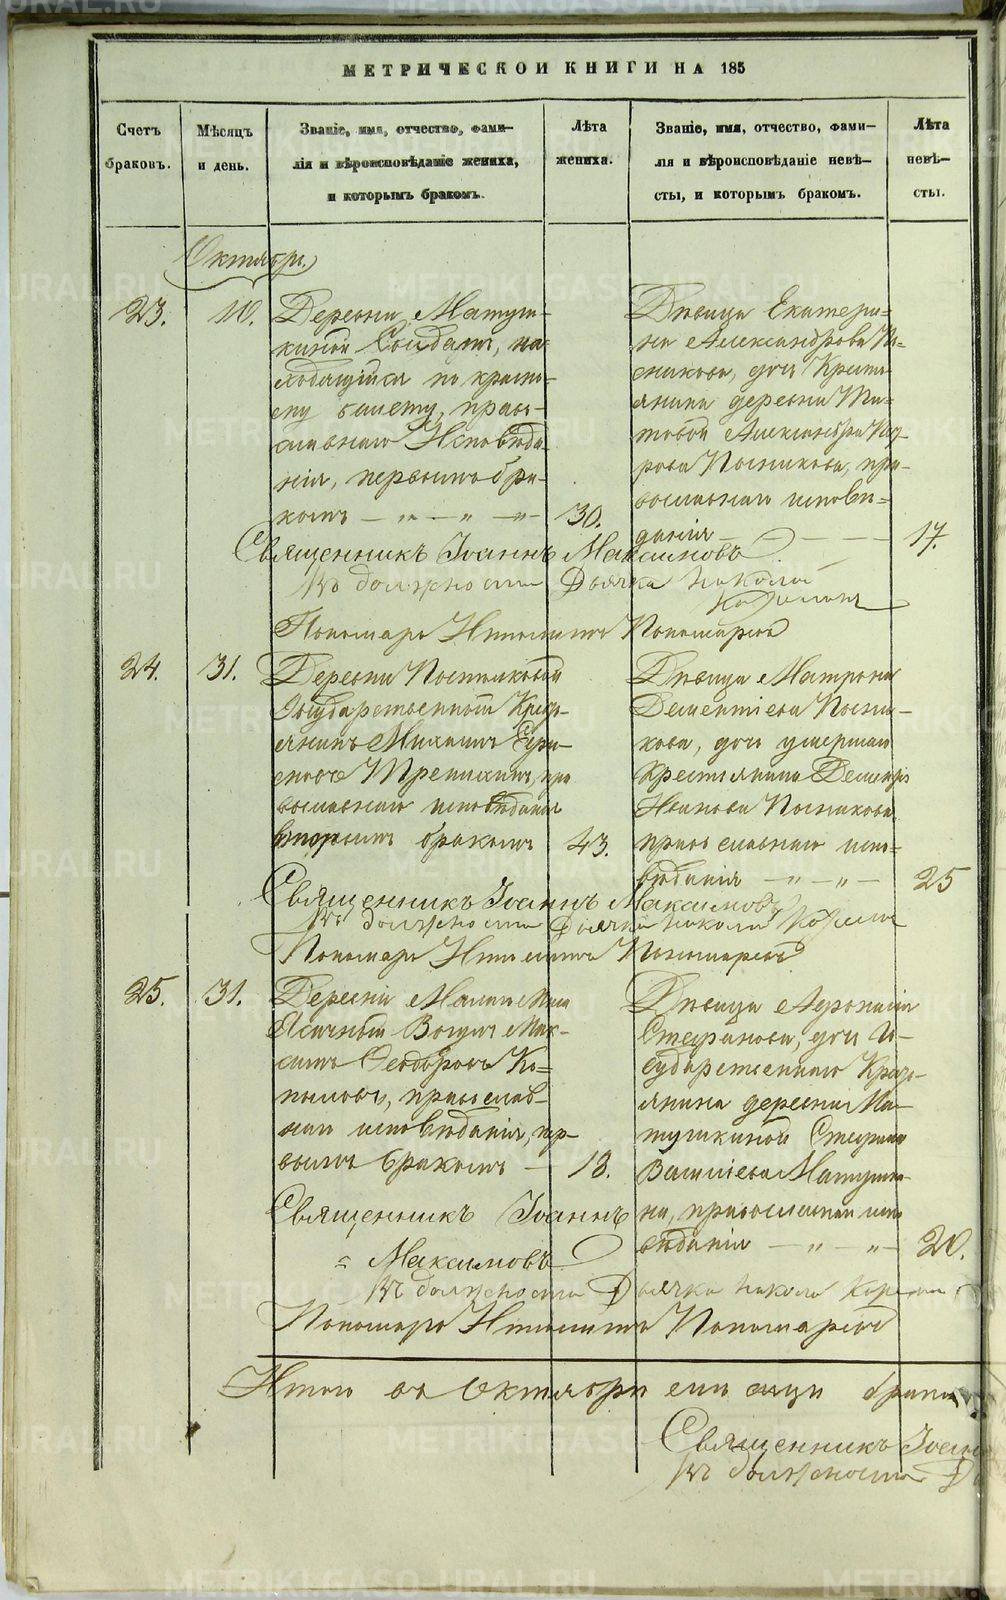 МЕТРИЧЕСКОЙ КНИГИ НА 185
Счетъ браковъ.
Мѣсяцъ и день.
Званіе, имя, отчество, фами-
лія и вѣроисповѣданіе жениха,
и которымъ бракомъ.
Лѣта жениха.
Званіе, имя, отчество, фами-
лія и вѣроисповѣданіе невѣ-
сты, и которымъ бракомъ.
Лѣта невѣ-
сты.
Октябрь.
23.
10.
Деревни Матуш-
киной Солдатъ, на-
ходящійся по красно-
му билету, право-
славнаго Исповѣда-
нія, первымъ бра-
комъ — „ — „ —
30.
Дѣвица Екатери-
на Александрова По-
сникова, дочь Кресть-
янина деревни Ти-
товой Александра
Посникова, пра-
вославнаго исповѣ-
данія — — —
17.
Священникъ Іоаннъ Максимовъ
Въ должности Дьячка Никола
Пономарь Ипполитъ Пономаревъ
24.
31.
Деревни
Государственный Кресть-
янинъ Михаилъ
пра
вославнаго исповѣданія
вторымъ бракомъ
43.
Дѣвица Матрона
Дементіева Посни-
кова, дочь умершаго
Крестьянина Дементія
Иванова Посникова
православнаго испо-
вѣданія — „ — „ —
25
Священникъ Іоаннъ Максимовъ
Въ должности Дьячка Никола
Пономарь Ипполитъ Пономаревъ
25.
31.
Деревни
Ясачный Вогулъ Мак-
симъ Ѳеодоровъ Ко-
пыловъ, православ-
наго исповѣданія, пер-
вымъ бракомъ —
18.
Дѣвица
Стефанова, дочь Го-
сударственнаго Кресть-
янина деревни Ма-
тушкиной Стефана
Василіева Матушки-
на, православнаго испо
вѣданія — „ — „ —
20.
Священникъ Іоаннъ
= Максимовъ
Въ должности Дьячка Никола
Пономарь Ипполитъ Пономаревъ
Итого въ Октябрѣ мѣсяцѣ
Священникъ
Въ должности
METRIKI.GASO-URAL.RU